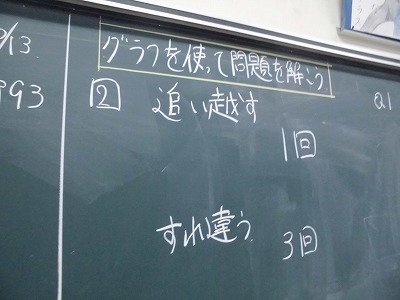 /13
993
グラフを使って問題を解こう
2 追い越す
1回
すれ違う 3回
Q1